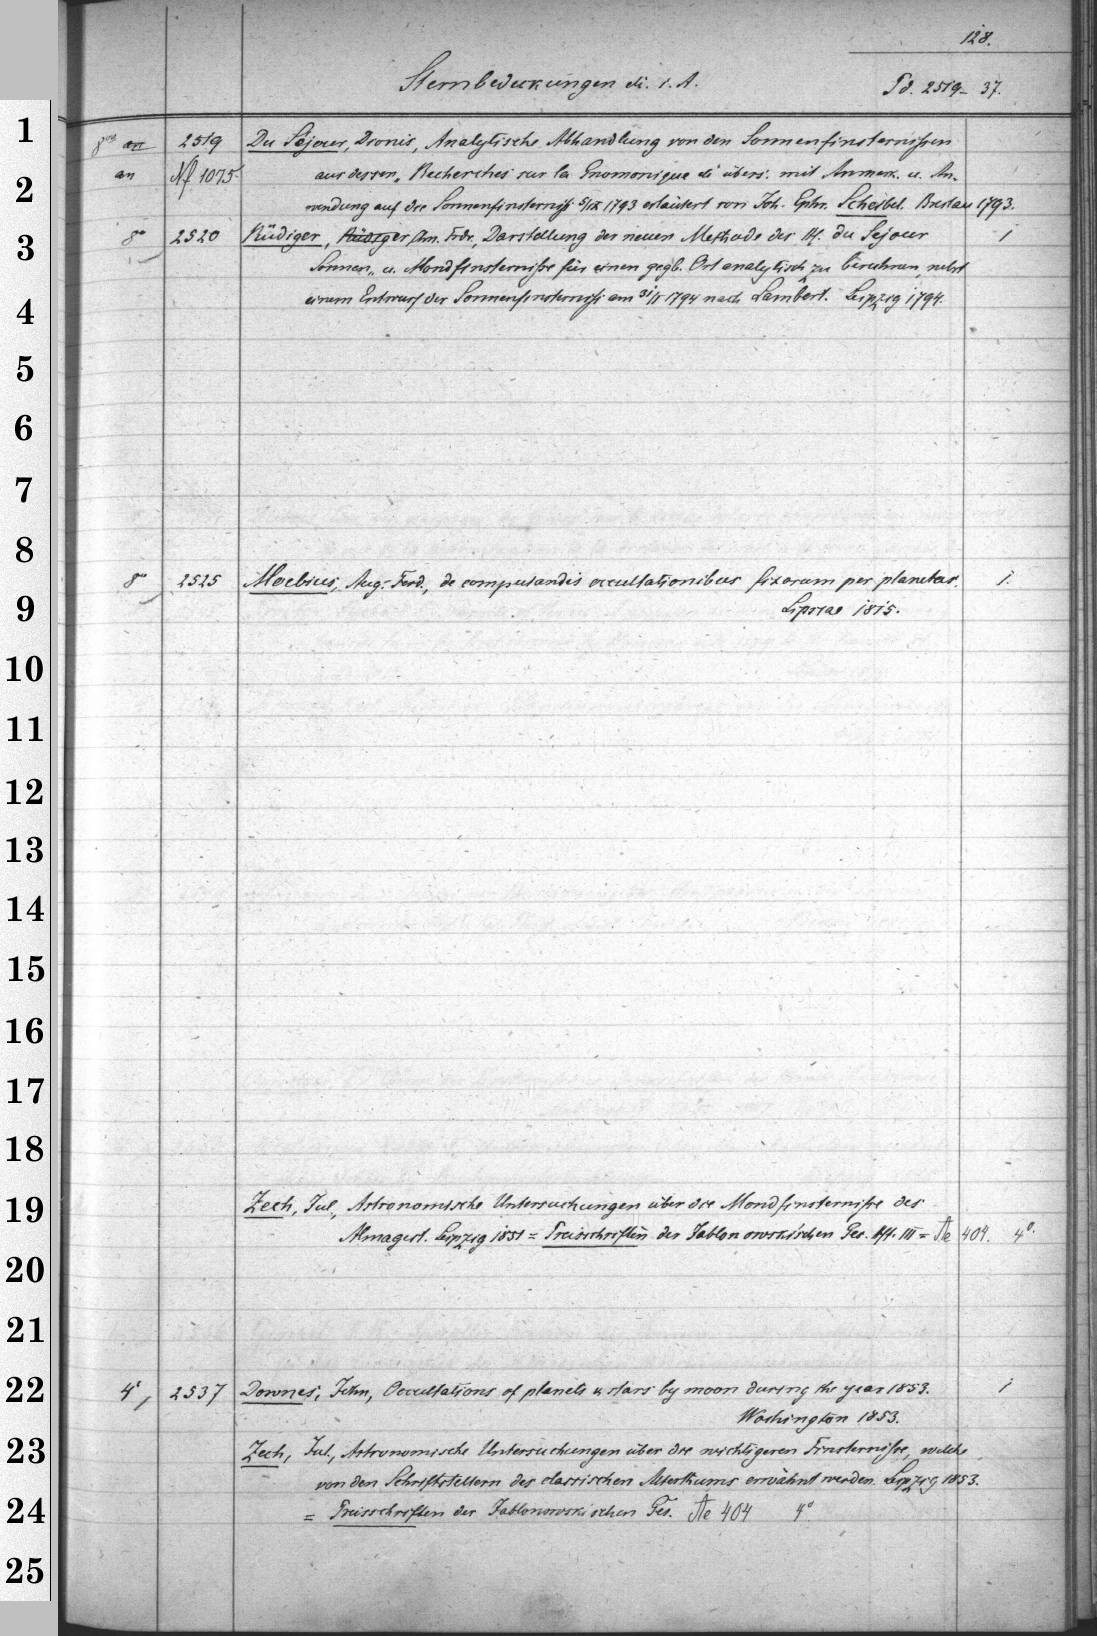 128.
Sternbedeckungen etc. s. A.
Pd. 2519 - 37.
1
8vo an 2519 Du Séjour, Dionis, Analytische Abhandlung von den Sonnenfinsternissen
2
an Nf 1075 aus dessen „Recherches sur la Gnomonique etc übers. mit Anmerk. u. An-
wendung auf die Sonnenfinsterniss 5/IX 1793 erläutert von Joh. Ephr. Scheibel. Breslau 1793.
3
8o 2520 Rüdiger, Rüdiger Chn. Frdr., Darstellung der neuen Methode des Hf. du Séjour 1
Sonnen- u. Mondfinsternisse für einen gegb. Ort analytisch zu berechnen, nebst
4
einem Entwurf der Sonnenfinsterniss am 31/I 1794 nach Lambert. Leipzig 1794.
5
6
7
8
8o 2525 Moebius, Aug. Ferd., de computandis occultationibus fixarum per planetas. 1.
9
Lipsiae 1815.
10
11
12
13
14
15
16
17
18
19
Zech, Jul., Astronomische Untersuchungen über die Mondfinsternisse des
Almagest. Leipzig 1851 = Preisschriften der Jablonowskischen Ges. Hft. III = Ae 404. 4o.
20
21
22
4o, 2537 Downes, John, Occultations of planets & stars by moon during the year 1853. 1
Washington 1853.
23
Zech, Jul., Astronomische Untersuchungen über die wichtigeren Finsternisse, welche
von den Schriftstellern des classischen Alterthums erwähnt werden. Leipzig 1853.
24
= Preisschriften der Jablonowskischen Ges. Ae 404 4o
25